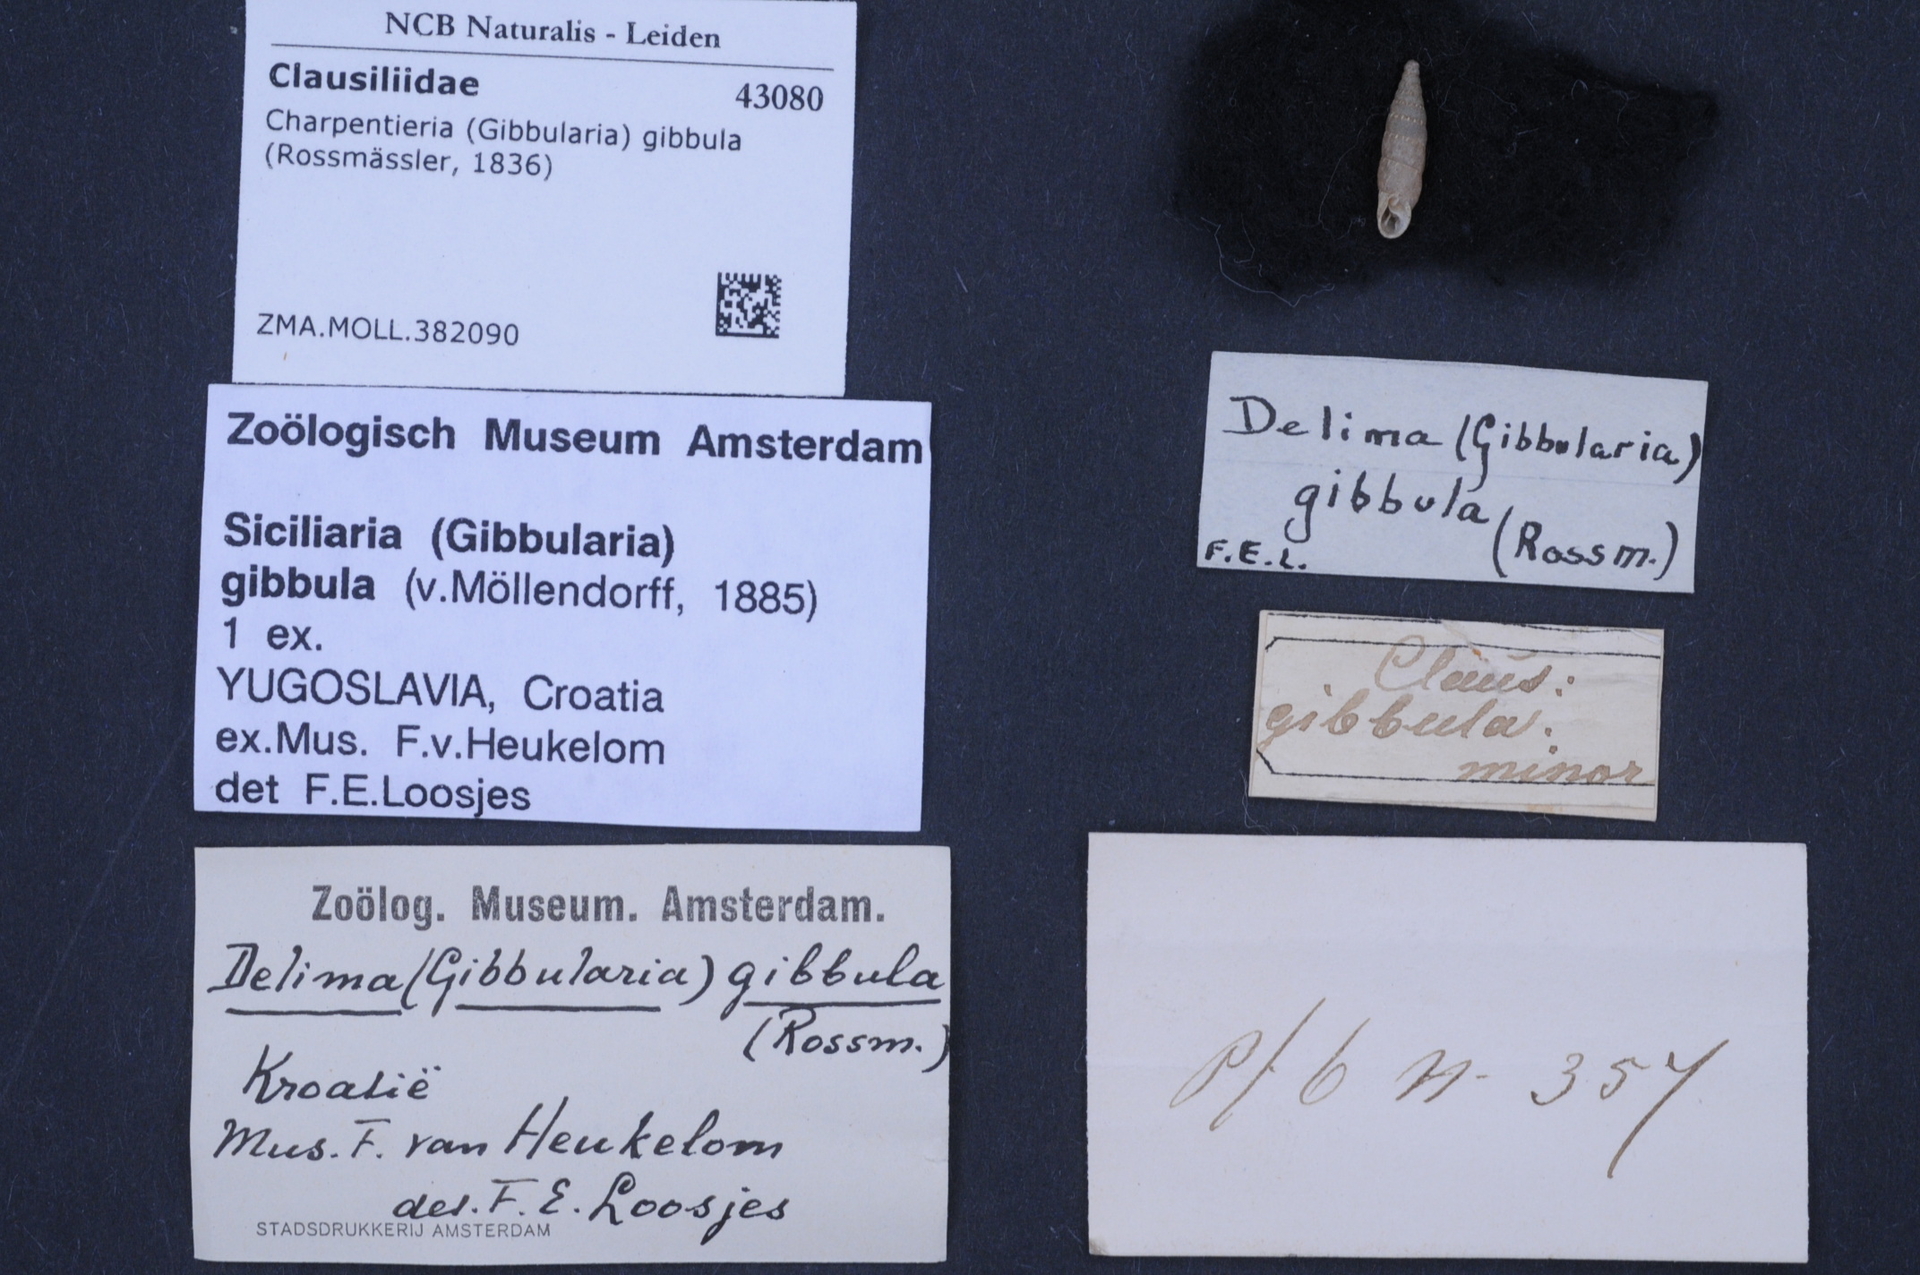 NCB Naturalis - Leiden
Clausiliidae 43080
Charpentieria (Gibbularia) gibbula
(Rossmässler, 1836)
ZMA.MOLL.382090
Zoölogisch Museum Amsterdam
Siciliaria (Gibbularia)
gibbula (v.Möllendorff, 1885)
1 ex.
YUGOSLAVIA, Croatia
ex.Mus. F.v.Heukelom
det F.E.Loosjes
Zoölog. Museum. Amsterdam.
Delima (Gibbularia) gibbula
(Rossm.)
Kroatië
Mus. F. van Heukelom
det. F. E. Loosjes
STADSDRUKKERIJ AMSTERDAM
Delima (Gibbularia)
gibbula
(Rossm.)
F.E.L.
Claus:
gibbula.
minor
357